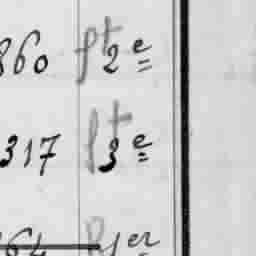 860 ft 2e
317 ft 3e
64 R 1er